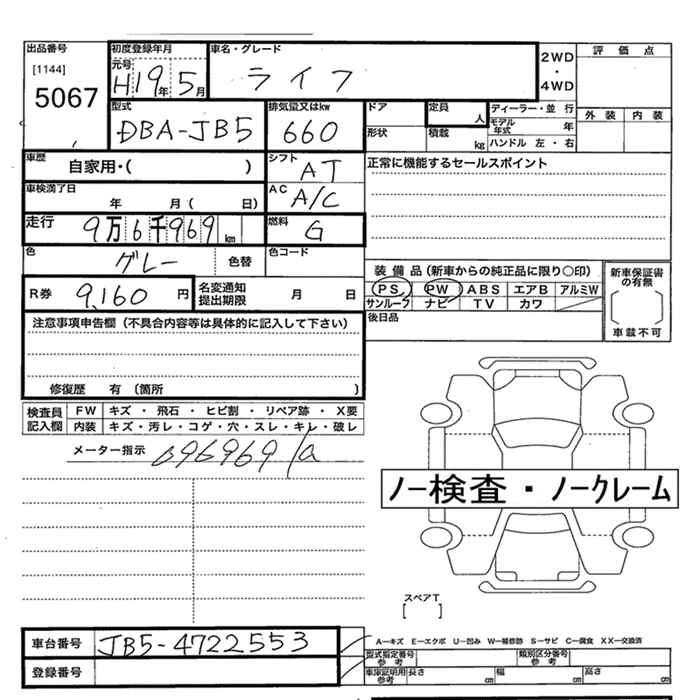 出品番号
[1144]
5067
初度登録年月
元号
H19年5月
車名・グレード
ライフ
2WD
・
4WD
評価点
外装 内装
型式
DBA-JB5
排気量又はkw
660
ドア
形状
定員
人
積載
kg
ディーラー・並行
モデル年式 年
ハンドル 左・右
車歴
自家用・( )
シフト
AT
正常に機能するセールスポイント
車検満了日
年 月( 日)
AC
A/C
走行
9万6千969km
燃料
G
色
グレー
色替
色コード
R券
9,160円
名変通知
提出期限
月 日
装備品(新車からの純正品に限り○印)
PS PW ABS エアB アルミW
サンルーフ ナビ TV カワ
新車保証書
の有無
車載不可
後日品
注意事項申告欄(不具合内容等は具体的に記入して下さい)
修復歴 有(箇所 )
検査員
記入欄
FW キズ・飛石・ヒビ割・リペア跡・X要
内装 キズ・汚レ・コゲ・穴・スレ・キレ・破レ
メーター指示
096969
ノー検査・ノークレーム
スペアT
[ ]
車台番号
JB5-4722553
登録番号
A—キズ E—エクボ U—凹み W—補修跡 S—サビ C—腐食 XX—交換済
型式指定番号
参考
類別区分番号
参考
車庫証明用
参考
長さ cm 幅 cm 高さ cm